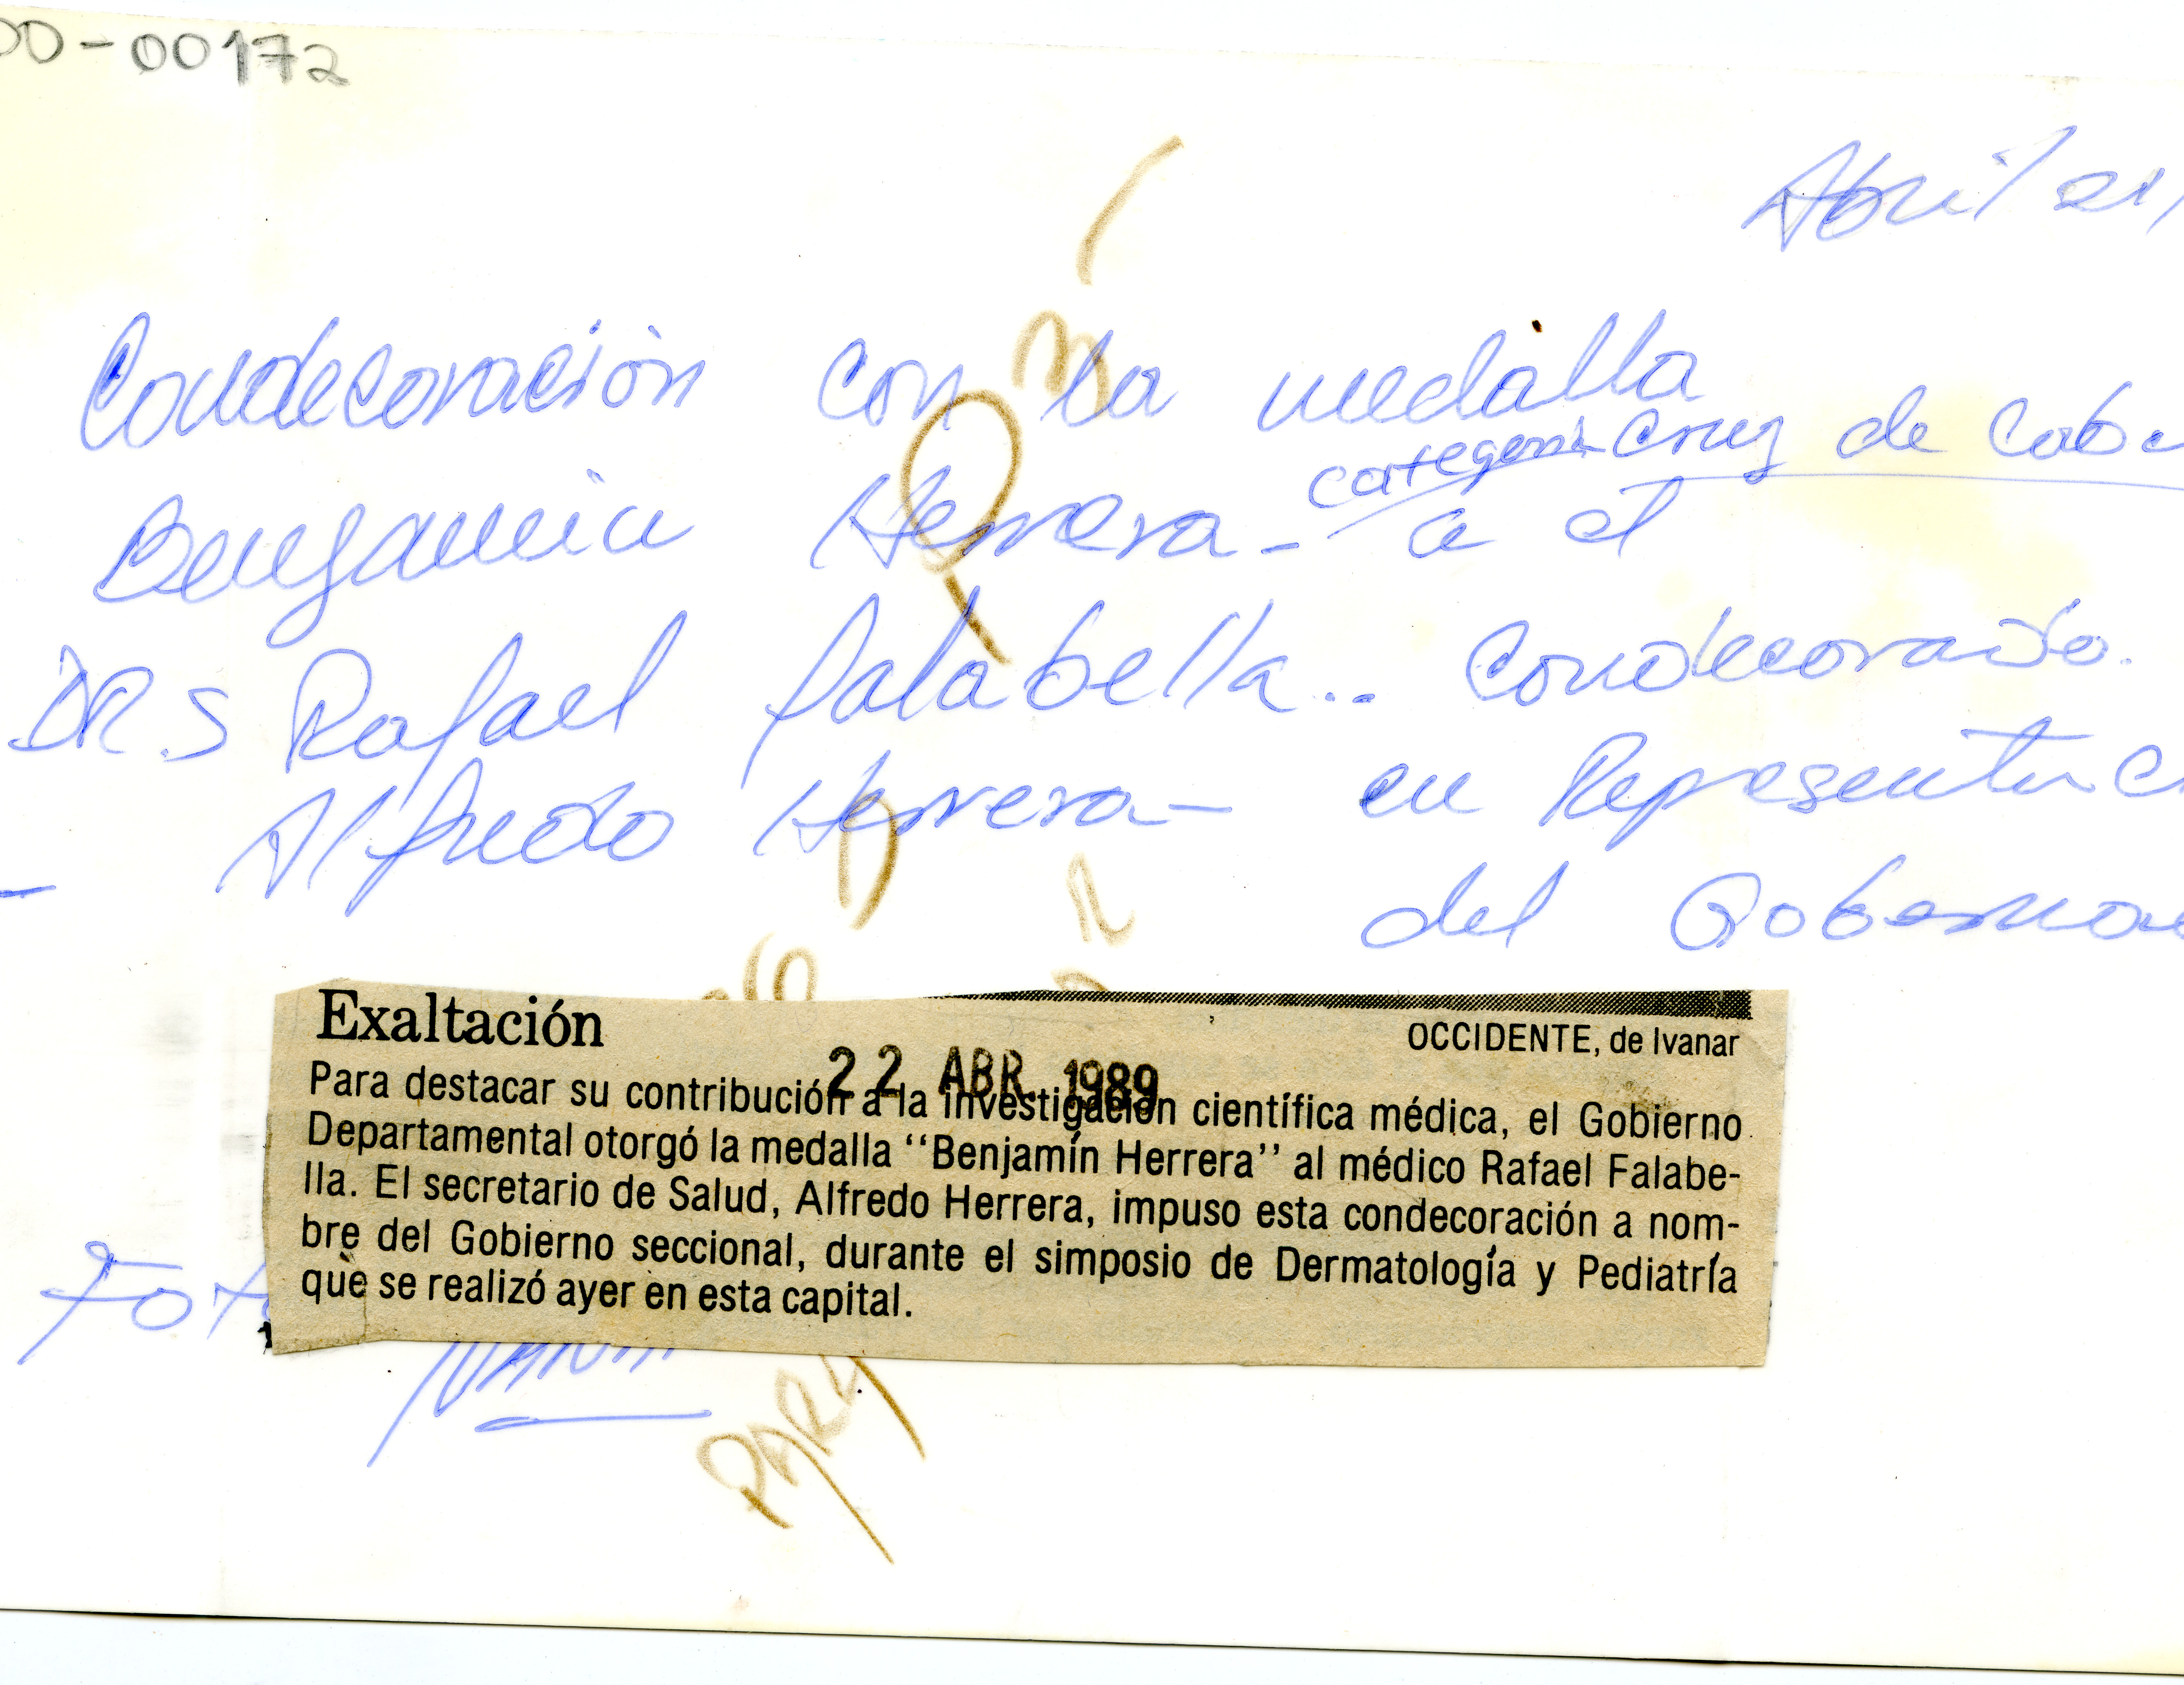 00-00172
Abril 21,
Condecoración con la medalla
categoria Cruz de Cab
Benjamin Herrera - a el
DR.S Rafael falabella.. Condecorado.
- Alfredo Herrera - en Representac
del Goberna
Exaltación
OCCIDENTE, de Ivanar
22 ABR. 1989
Para destacar su contribución a la investigación científica médica, el Gobierno
Departamental otorgó la medalla “Benjamín Herrera” al médico Rafael Falabe-
lla. El secretario de Salud, Alfredo Herrera, impuso esta condecoración a nom-
bre del Gobierno seccional, durante el simposio de Dermatología y Pediatría
que se realizó ayer en esta capital.
Fot